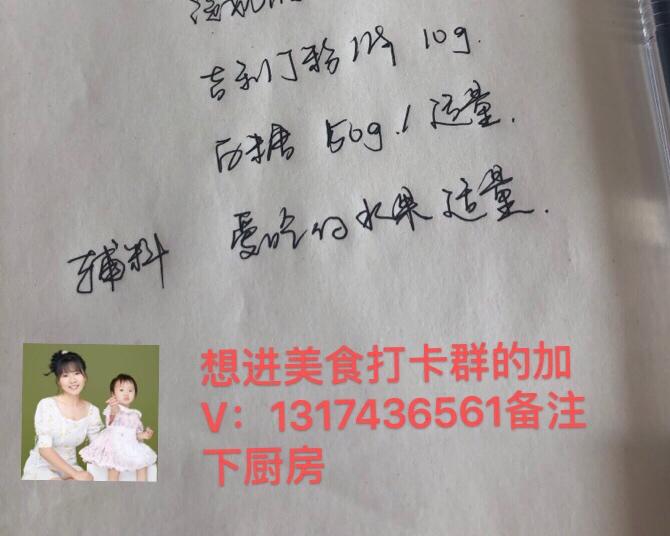 吉利丁粉 10g.
白糖 50g / 适量.
辅料 爱吃的水果 适量.
想进美食打卡群的加
V：1317436561备注
下厨房